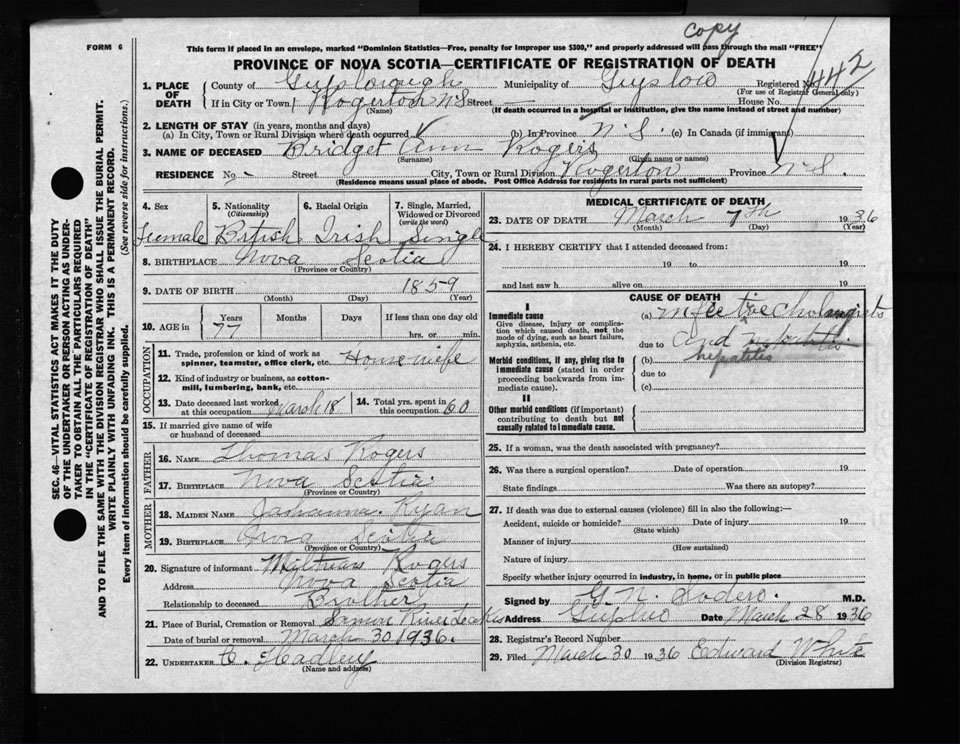 copy
FORM 6
This form if placed in an envelope, marked "Dominion Statistics—Free, penalty for improper use $300," and properly addressed will pass through the mail "FREE"
PROVINCE OF NOVA SCOTIA—CERTIFICATE OF REGISTRATION OF DEATH
442
1. PLACE OF DEATH County of Guysborough Municipality of Guysboro Registered No.
(For use of Registrar General only)
If in City or Town Rogerton N S Street — House No.
(Name) (If death occurred in a hospital or institution, give the name instead of street and number)
2. LENGTH OF STAY (in years, months and days)
(a) In City, Town or Rural Division where death occurred (b) in Province N.S. (c) In Canada (if immigrant)
3. NAME OF DECEASED Bridget Ann Rogers
(Surname) (Given name or names)
RESIDENCE No - Street City, Town or Rural Division Rogerton Province N.S.
(Residence means usual place of abode. Post Office Address for residents in rural parts not sufficient)
4. Sex 5. Nationality (Citizenship) 6. Racial Origin 7. Single, Married, Widowed or Divorced (write the word)
Female British Irish Single
8. BIRTHPLACE Nova Scotia
(Province or Country)
9. DATE OF BIRTH 1859
(Month) (Day) (Year)
10. AGE in Years Months Days If less than one day
77 hrs. or min.
OCCUPATION
11. Trade, profession or kind of work as spinner, teamster, office clerk, etc. Housewife
12. Kind of industry or business, as cotton-mill, lumbering, bank, etc.
13. Date deceased last worked at this occupation March 18 14. Total yrs. spent in this occupation 60
15. If married give name of wife or husband of deceased
FATHER
16. NAME Thomas Rogers
17. BIRTHPLACE Nova Scotia
(Province or Country)
MOTHER
18. MAIDEN NAME Johanna Ryan
19. BIRTHPLACE Nova Scotia
(Province or Country)
20. Signature of informant Rogers
Address Nova Scotia
Relationship to deceased Brother
21. Place of Burial, Cremation or Removal Salmon River
Date of burial or removal March 30 1936.
22. UNDERTAKER C. Hadley
(Name and address)
MEDICAL CERTIFICATE OF DEATH
23. DATE OF DEATH March 7th 1936
(Month) (Day) (Year)
24. I HEREBY CERTIFY that I attended deceased from:
19 to 19
and last saw h alive on 19
CAUSE OF DEATH
I
Immediate cause
Give disease, injury or complication which caused death, not the mode of dying, such as heart failure, asphyxia, asthenia, etc.
Morbid conditions, if any, giving rise to immediate cause (stated in order proceeding backwards from immediate cause).
II
Other morbid conditions (if important) contributing to death but not causally related to immediate cause.
(a) Infective cholangitis
due to and
(b) hepatitis
due to
(c)
25. If a woman, was the death associated with pregnancy?
26. Was there a surgical operation? Date of operation 19
State findings Was there an autopsy?
27. If death was due to external causes (violence) fill in also the following:—
Accident, suicide or homicide? Date of injury 19
(State which)
Manner of injury
(How sustained)
Nature of injury
Specify whether injury occurred in industry, in home, or in public place
Signed by G. N. Sodero. M.D.
Address Guysboro Date March 28 1936
28. Registrar's Record Number
29. Filed March 30 1936 Edward White
(Division Registrar)
SEC. 46—VITAL STATISTICS ACT MAKES IT THE DUTY
OF THE UNDERTAKER OR PERSON ACTING AS UNDER-
TAKER TO OBTAIN ALL THE PARTICULARS REQUIRED
IN THE "CERTIFICATE OF REGISTRATION OF DEATH"
AND TO FILE THE SAME WITH THE DIVISION REGISTRAR WHO SHALL ISSUE THE BURIAL PERMIT.
WRITE PLAINLY WITH UNFADING INK. THIS IS A PERMANENT RECORD.
Every item of information should be carefully supplied. (See reverse side for instructions.)